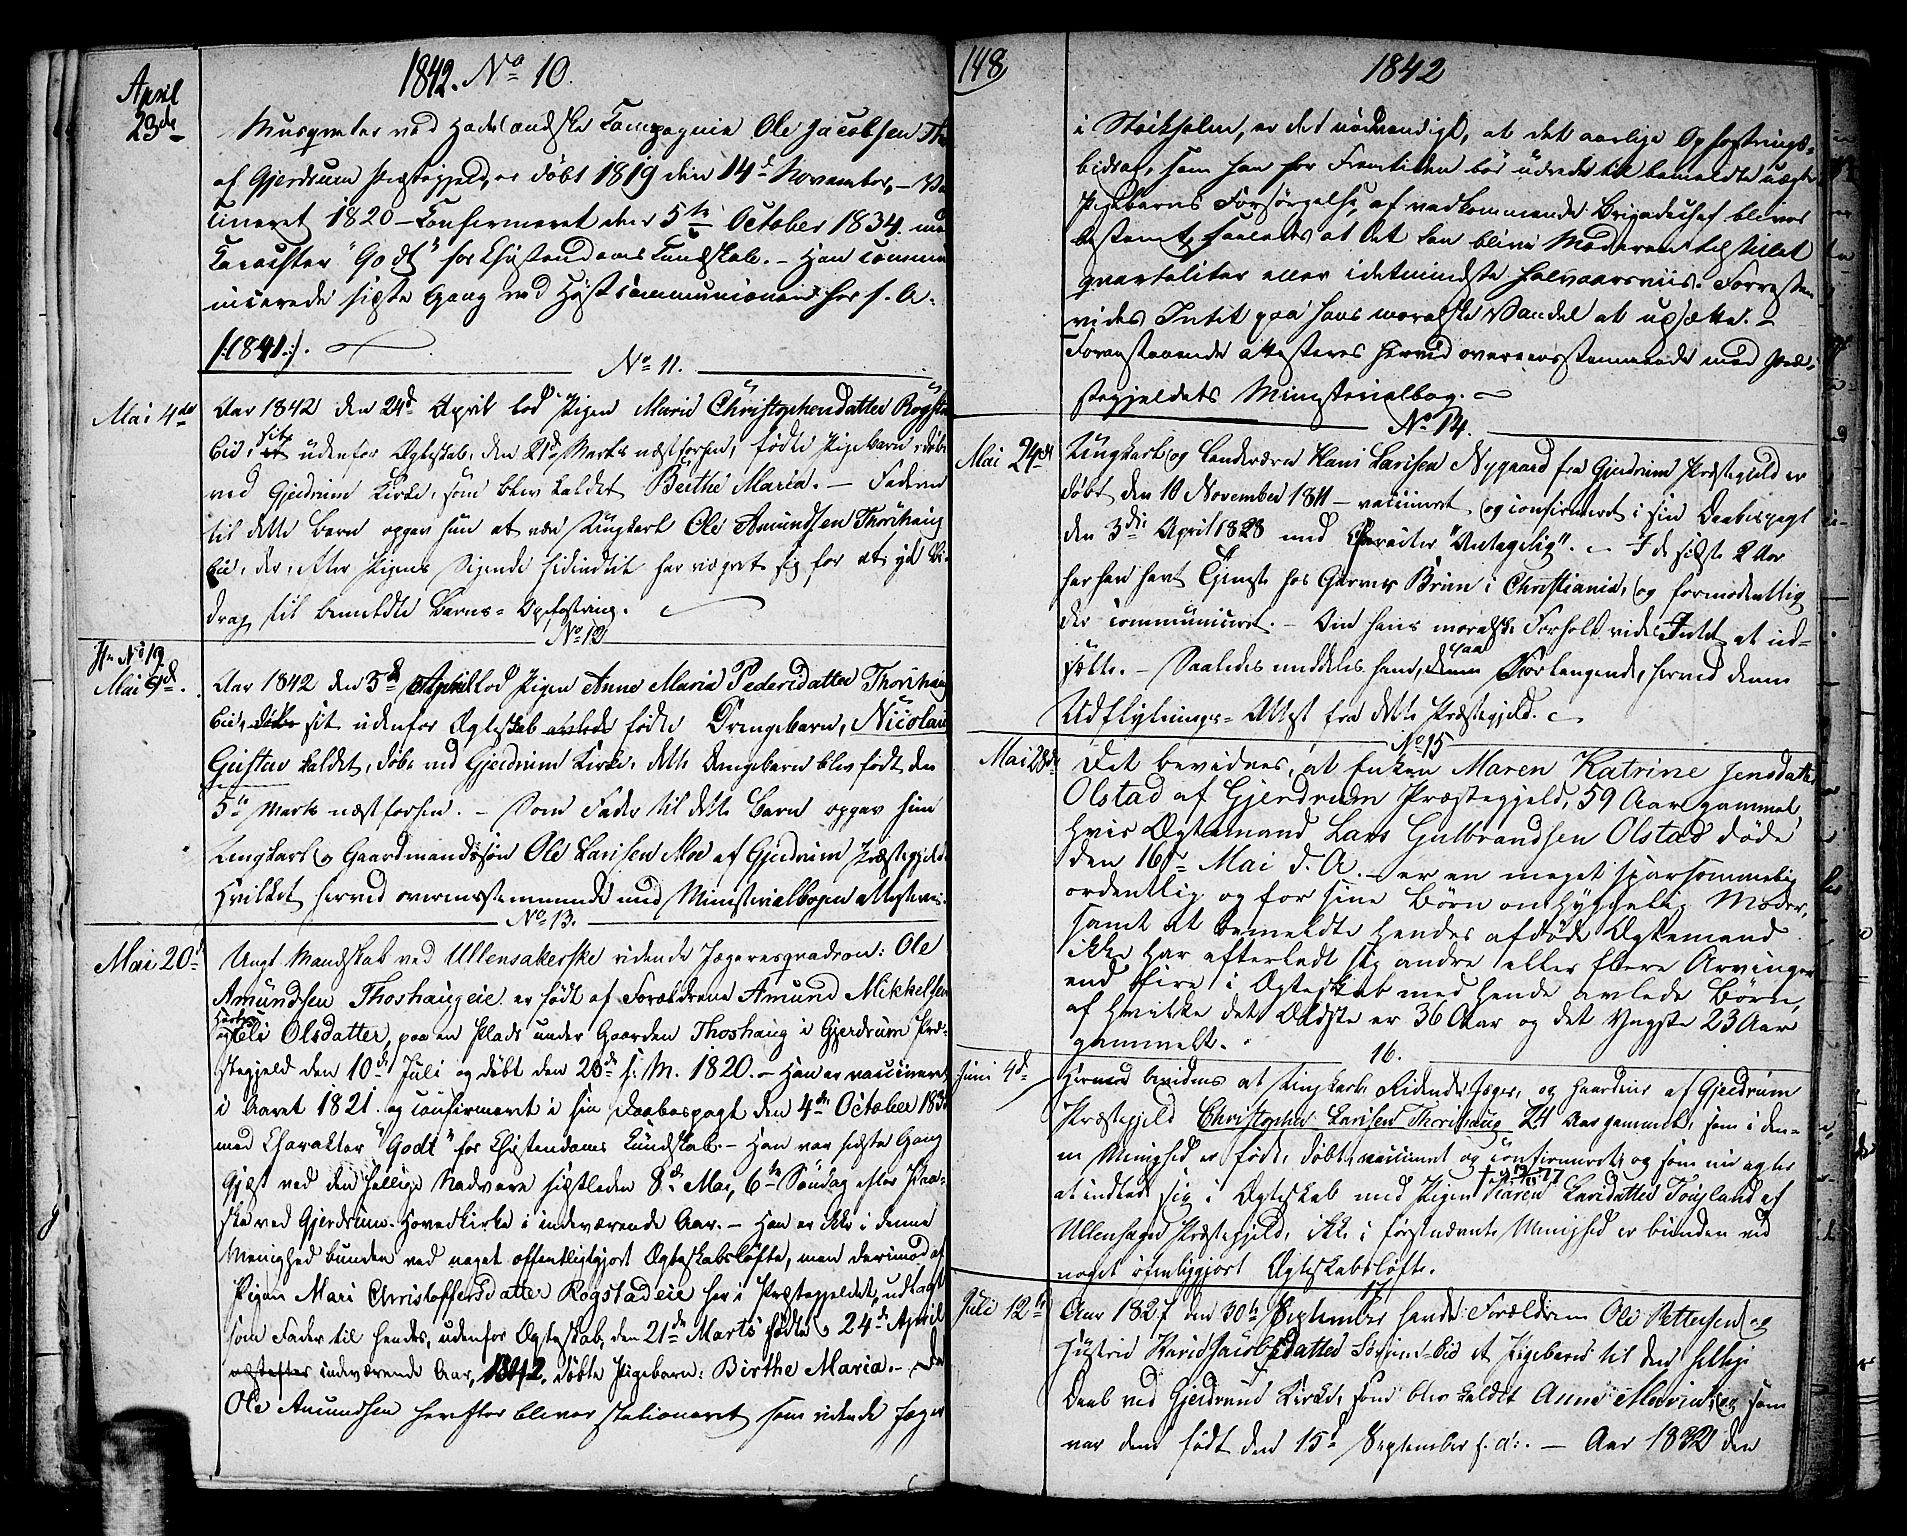 1842. No 10.
April
23de
Musqueter ved Hadelandske Compagnie Ole Jacobsen
af Gjerdrum Præstegjeld, er døbt 1819 den 14de November, –
cineret 1820 – Confirmeret den 5te October 1834. med
Carachter "Godt" for Christendoms Kundskab. – Han commu
nicerede sidste Gang ved Høstcommunionen her f. A.
/:1841:/.
No 11.
Mai 4de
Aar 1842 den 24de April lod Pigen Marie Christophersdatter Rogstad
eie, sit udenfor Ægteskab, den 21de Marts næstforhen, fødte Pigebarn døbe
ved Gjerdrum Kirke, som blev kaldet Berthe Maria. – Faderen
til dette Barn opgav hun at være Ungkarl Ole Amundsen Thorshaug
eie, der, efter Pigens Sigende hidindtil har vægret sig for at yde Bi
drag til bemeldte Barns Opfostring.
No 12
Mai
Aar 1842 den 3de April lod Pigen Anne Maria Pedersdatter Thorshaug
eie, sit udenfor Ægteskab avlede fødte Drengebarn, Nicolai
Gustav kaldet, døbe ved Gjerdrum Kirke, dette Drengebarn blev født den
5te Marts næstforhen. – Som Fader til dette Barn opgav hun
Ungkarl og Gaardmandssøn Ole Larsen Moe af Gjerdrum Præstegjeld.
Hvilket herved overensstemmende med Ministerialbogen attesteres.
No 13.
Mai 20de
Ungt Mandskab ved Ullensakerske ridende Jægeresquadron: Ole
Amundsen Thoshaugeie er født af Forældrene Amund Mikkelsen
og Hustru Eli Olsdatter, paa en Plads under Gaarden Thoshaug i Gjerdrum Præ-
stegjeld den 10de Juli og døbt den 23de s. M. 1820. – Han er vaccineret
i Aaret 1821. og confirmeret i sin Daabspagt den 4de October 183
med Charakter "Godt" for Christendoms Kundskab. – Han var sidste Gang
Gjest ved den hellige Nadvere sidstleden 8de Mai, 6te Søndag efter Paa-
ske ved Gjerdrums Hovedkirke i indeværende Aar. – Han er ikke i denne
Menighed bunden ved noget offentliggjort Ægteskabsløfte, men derimod af
Pigen Mari Christoffersdatter Rogstadeie her i Præstegjeldet, udlagt
som Fader til hendes, udenfor Ægteskab, den 21de Marts fødte og 24de April
næstefter indeværende Aar, 1842, døbte Pigebarn: Birthe Maria. – Da
Ole Amundsen herefter bliver stationeret som ridende Jæger
148
1842
i Stockholm, er det nødvendigt, at det aarlige Opfostrings-
bidrag, som han for Fremtiden bør udrede til bemeldte uægte
Pigebarns Forsørgelse, af vedkommende Brigadechef bliver
bestemt, saaledes at det kan blive Moderen tilstillet
qvartaliter eller i det mindste halvaarsviis. Forresten
vides Intet paa hans moralske Vandel at udsætte. –
Foranstaaende attesteres herved overensstemmende med Præ-
stegjeldets Ministerialbog.
No 14.
Mai 24de
Ungkarl og Landeværn Hans Larsen Nygaard fra Gjerdrum Præstegjeld er
døbt den 10 November 1811 – vaccineret, og confirmeret i sin Daabspagt
den 3die April 1828 med Charakter "Antagelig". – I de sidste 2 Aar
har han havt Tjeneste hos Garver Brun i Christiania, og formodentlig
der communiceret. – Om hans moralske Forhold vides Intet at ud-
sætte. – Saaledes meddeles ham, paa Forlangende, herved denne
Udflytnings-Attest fra dette Præstegjeld.
No 15
Mai 28de
Det bevidnes, at Enken Maren Katrine Jensdatter
Olstad af Gjerdrum Præstegjeld, 59 Aar gammel,
hvis Ægtemand Lars Gulbrandsen Olstad døde
den 16de Mai d. A. – er en meget sparsommelig
ordentlig og for sine Børn omhyggelig Moder,
samt at bemeldte hendes afdøde Ægtemand
ikke har efterladt sig andre eller flere Arvinger
end fire i Ægteskab med hende avlede Børn,
af hvilke det Ældste er 36 Aar og det Yngste 23 Aar
gammelt.
16.
Juni 4de
Hermed bevidnes at Ungkarl Ridende Jæger, af Gjerdrum
Præstegjeld Christopher Larsen Thorshaug 24 Aar gammel, som i den-
ne Menighed er født, døbt, vaccineret og confirmeret, og som nu agter
at indlade sig i Ægteskab med Pigen Karen Larsdatter af
Ullensager Præstegjeld, ikke i førstnævnte Menighed er bunden ved
noget offentliggjort Ægteskabsløfte.
17
Juli 12te
Aar 1827 den 30te September havde Forældrene Ole Pettersen og
Hustrue Kari Jacobsdatter et Pigebarn til den hellige
Daab ved Gjerdrum Kirke, som blev kaldet Anne og som
var den født den 15de September s. A. – Aar 1832 den